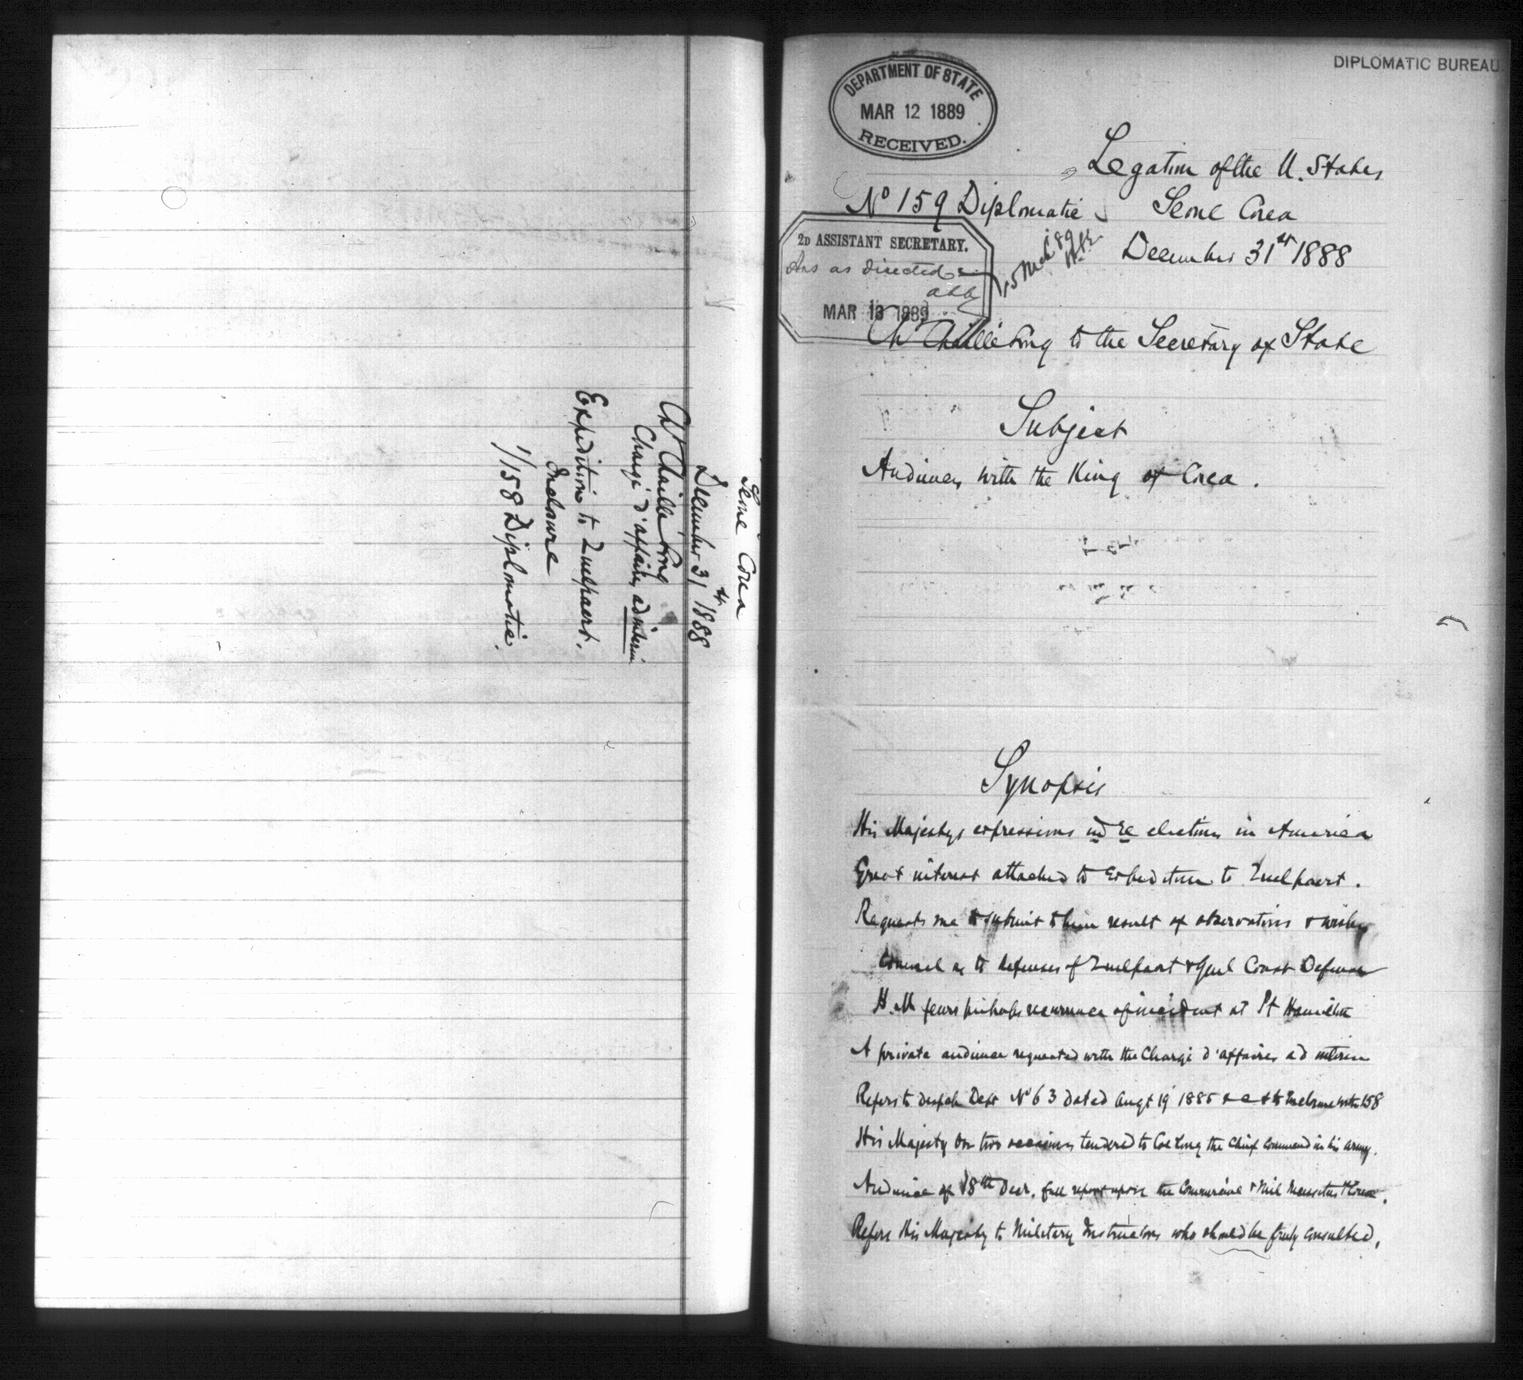 Seoul Corea
December 31st 1888
Ch. Chaillé Long
Chargé d'affaires ad interim
Expedition to Quelpaert.
Inclosure
1/158 Diplomatic.
DIPLOMATIC BUREAU
DEPARTMENT OF STATE
MAR 12 1889
RECEIVED.
Legation of the U. States
No 159 Diplomatic Seoul Corea
December 31st 1888
2D ASSISTANT SECRETARY.
Ans as directed
MAR 13 1889
15 Mch '89
Ch. Chaillé Long to the Secretary of State
Subject
Audience with the King of Corea.
Synopsis
His Majestys expressions in re election in America
Great interest attached to Expedition to Quelpaert.
Requests me to submit to him result of observations & wishes
Counsel as to defenses of Quelpaert & Genl Coast Defense
H.M fears perhaps recurrence of incident at Pt Hamilton
A private audience requested with the Chargé d'affaires ad interim
Refers to despch Dept No 63 dated Augt 19 1885 & to Enclosure with 158
His Majesty on two occasions tendered to Col Long the Chief Command in his army.
Audience of 18th Decr. full report upon the Commercial & Mil Necessities of Corea.
Refers His Majesty to Military Instructors who should be freely consulted.